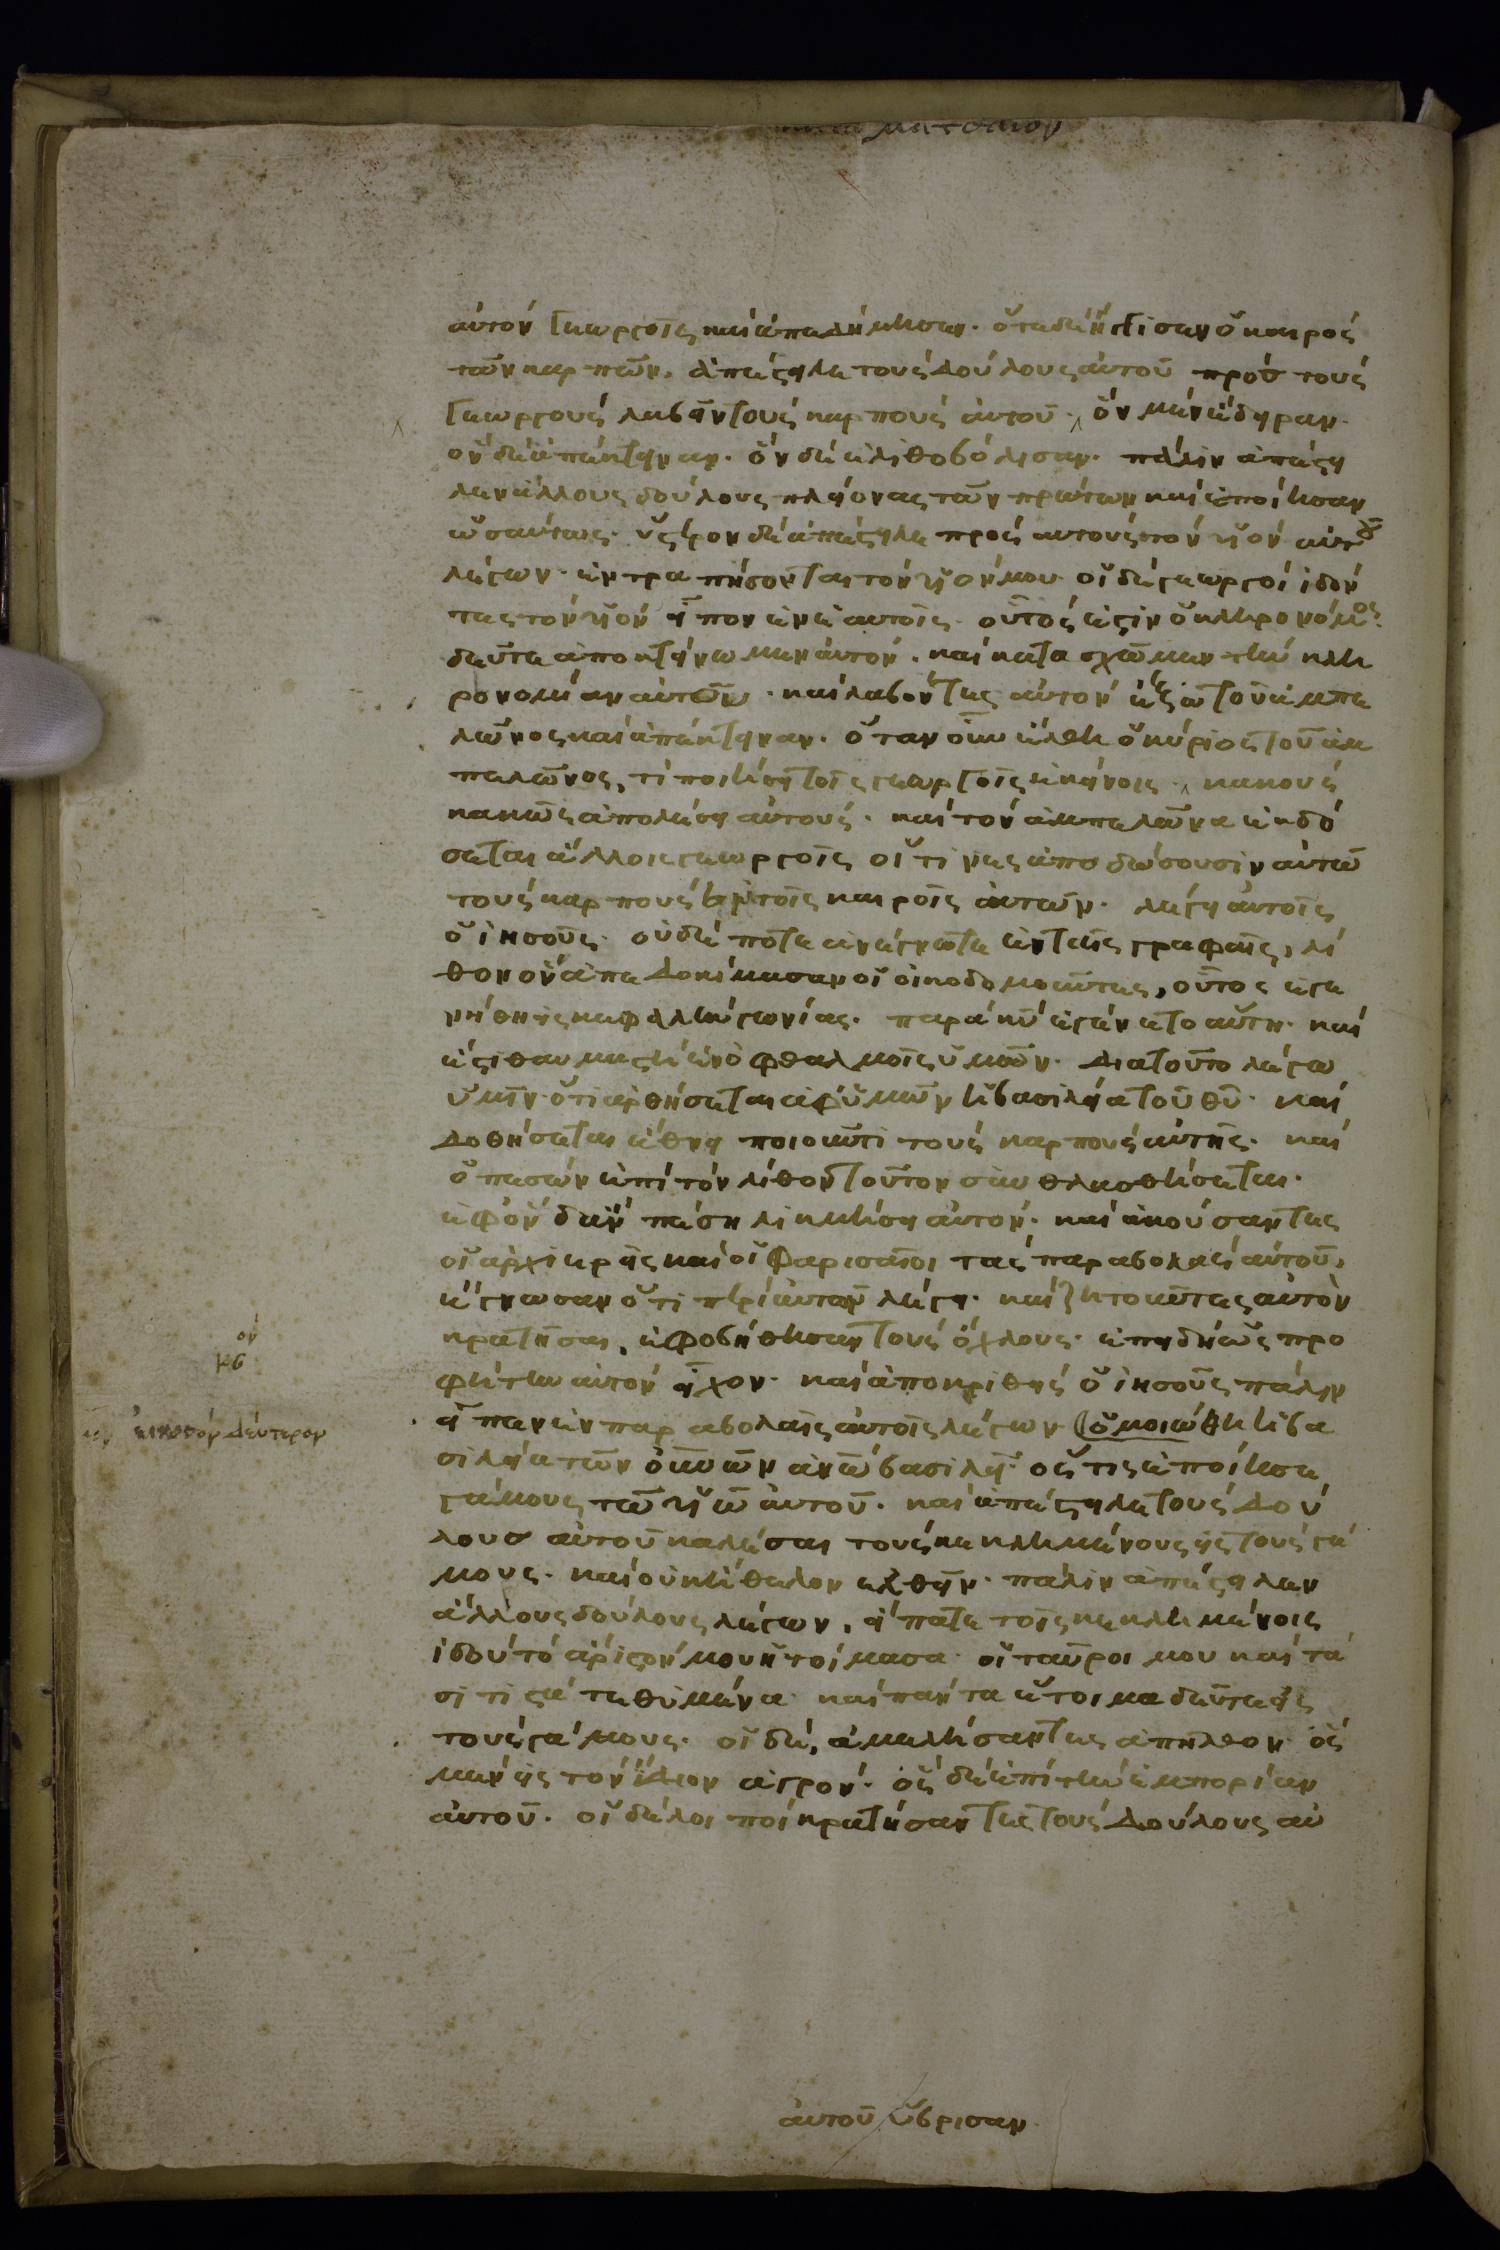 ματθαιον
αὐτὸν γεωργοῖς καὶ ἀπεδήμησεν. ὅτε δὲ ἤγγισεν ὁ καιρὸς
τῶν καρπῶν, ἀπέστειλε τοὺς δούλους αὐτοῦ πρὸς τοὺς
γεωργοὺς λαβεῖν τοὺς καρποὺς αὐτοῦ. ὃν μὲν ἔδειραν.
ὃν δὲ ἀπέκτειναν. ὃν δὲ ἐλιθοβόλησαν. πάλιν ἀπέστει
λεν ἄλλους δούλους πλείονας τῶν πρώτων καὶ ἐποίησαν
ὡσαύτως. ὕστερον δὲ ἀπέστειλε πρὸς αὐτοὺς τὸν υἱὸν αὐτοῦ
λέγων. ἐντραπήσονται τὸν υἱόν μου. οἱ δὲ γεωργοὶ ἰδόν
τες τὸν υἱὸν εἶπον ἐν ἑαυτοῖς. οὗτός ἐστιν ὁ κληρονόμος.
δεῦτε ἀποκτείνωμεν αὐτόν. καὶ κατασχῶμεν τὴν κλη
ρονομίαν αὐτοῦ. καὶ λαβόντες αὐτὸν ἔξω τοῦ ἀμπε
λῶνος καὶ ἀπέκτειναν. ὅταν οὖν ἔλθη ὁ κύριος τοῦ ἀμ
πελῶνος, τί ποιήσει τοῖς γεωργοῖς ἐκείνοις. κακοὺς
κακῶς ἀπολέσει αὐτούς. καὶ τὸν ἀμπελῶνα ἐκδό
σεται ἄλλοις γεωργοῖς οἵτινες ἀποδώσουσιν αὐτῶ
τοὺς καρποὺς ἐν τοῖς καιροῖς αὐτῶν. λέγει αὐτοῖς
ὁ ἰησοῦς. οὐδέποτε ἀνέγνωτε ἐν ταῖς γραφαῖς, λί
θον ὃν ἀπεδοκίμασαν οἱ οἰκοδομοῦντες, οὗτος ἐγε
νήθη εἰς κεφαλὴν γωνίας. παρὰ κυ ἐγένετο αὕτη. καὶ
ἔστι θαυμαστὴ ἐν ὀφθαλμοῖς ὑμῶν. διατοῦτο λέγω
ὑμῖν. ὅτι ἀρθήσεται ἀφ' ὑμῶν ἡ βασιλεία τοῦ θυ. καὶ
δοθήσεται ἔθνει ποιοῦντι τοὺς καρποὺς αὐτῆς. καὶ
ὁ πεσὼν ἐπὶ τὸν λίθον τοῦτον συνθλασθήσεται.
ἐφ' ὃν δ' ἂν πέση λικμήσει αὐτόν. καὶ ἀκούσαντες
οἱ ἀρχιερεῖς καὶ οἱ φαρισαῖοι τὰς παραβολὰς αὐτοῦ,
ἔγνωσαν ὅτι περὶ αὐτῶν λέγει. καὶ ζητοῦντες αὐτὸν
κρατῆσαι, ἐφοβήθησαν τοὺς ὄχλους. ἐπειδὴ ὡς προ
φήτην αὐτὸν εἶχον. καὶ ἀποκριθεὶς ὁ ἰησοῦς πάλιν
εἶπεν ἐν παραβολαῖς αὐτοῖς λέγων. (ὁμοιώθη ἡ βα
σιλεία τῶν οὐνῶν ἀνῶ βασιλεῖ. ὅστις ἐποίησε
γάμους τῶ υἱῶ αὐτοῦ. καὶ ἀπέστειλε τοὺς δού
λους αὐτοῦ καλέσαι τοὺς κεκλημένους εἰς τοὺς γά
μους. καὶ οὐκ ἤθελον ἐλθεῖν. πάλιν ἀπέστειλεν
ἄλλους δούλους λέγων, εἴπατε τοῖς κεκλημένοις
ἰδοὺ τὸ ἄριστόν μου ἡτοίμασα. οἱ ταῦροι μου καὶ τὰ
σιτιστὰ τεθυμένα. καὶ πάντα ἕτοιμα δεῦτε εἰς
τοὺς γάμους. οἱ δὲ, ἀμελήσαντες ἀπῆλθον. ὃς
μὲν εἰς τὸν ἴδιον ἀγρόν. ὃς δὲ ἐπὶ τὴν ἐμπορίαν
αὐτοῦ. οἱ δὲ λοιποὶ κρατήσαντες τοὺς δούλους αὐ
ον
κβ
εἰκοστὸν δεύτερον
αὐτοῦ ὕβρισαν.